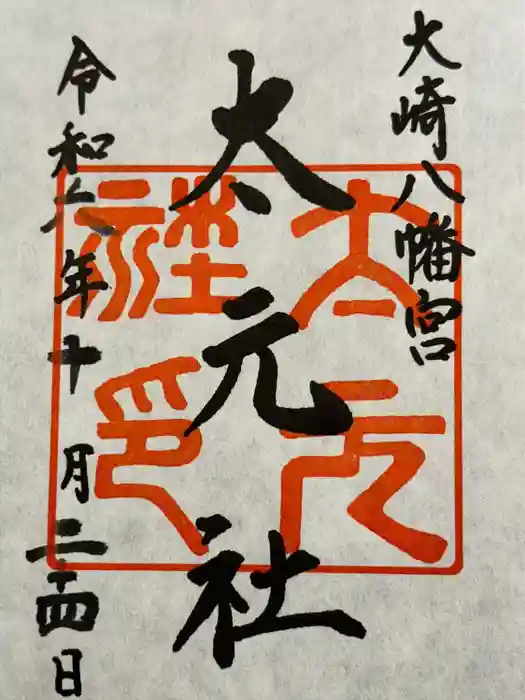 大崎八幡宮
太元社
太元社印
令和六年十月二十四日